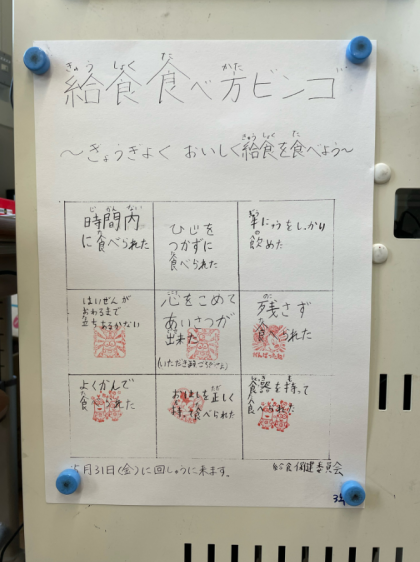 きゅうしょく た かた
給食 食べ方ビンゴ
～きょうぎよく おいしく給食を食べよう～
時間内
に食べられた
ひじを
つかずに
食べられた
牛にゅうをしっかり
飲めた
はいぜんが
おわるまで
立ちあるかない
心をこめて
あいさつが
出来た
(いただきます・ごちそうさま)
残さず
食べられた
よくかんで
食べられた
おはしを正しく
持って食べられた
食器を持って
食べられた
5月31日(金)に回しゅうに来ます。
給食保健委員会